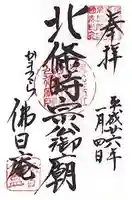 奉拝
平成廿六年
一月四日
北條時宗御廟
かまくら
佛日庵